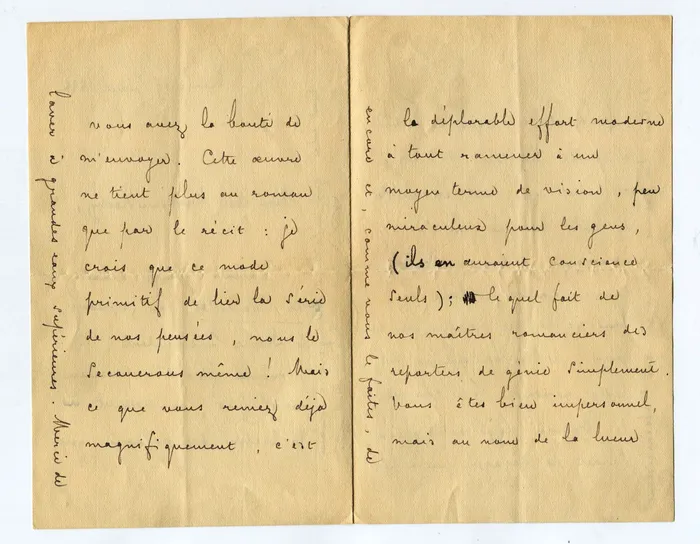 vous avez la bonté de
m'envoyer. Cette œuvre
ne tient plus au roman
que par le récit : je
crois que ce mode
primitif de lier la série
de nos pensées, nous le
secouerons même ! Mais
ce que vous reniez déjà
magnifiquement, c'est
la déplorable effort moderne
à tout ramener à un
moyen terme de vision, peu
miraculeux pour les gens,
(ils en auraient conscience
seuls); lequel fait de
nos maîtres romanciers des
reporters de génie simplement.
Vous êtes bien impersonnel,
mais au nom de la lueur
encore et, comme vous le faites, de
laver à grandes eaux supérieures. Merci de